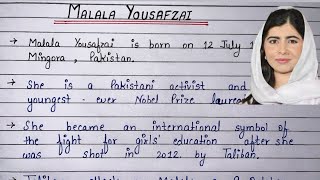 MALALA YOUSAFZAI
→ Malala Yousafzai is born on 12 July 1
Mingora, Pakistan.
→ She is a Pakistani activist and
youngest - ever Nobel Prize laure
→ She became an international symbol of
the fight for girls' education after she
was shot in 2012. by Taliban.